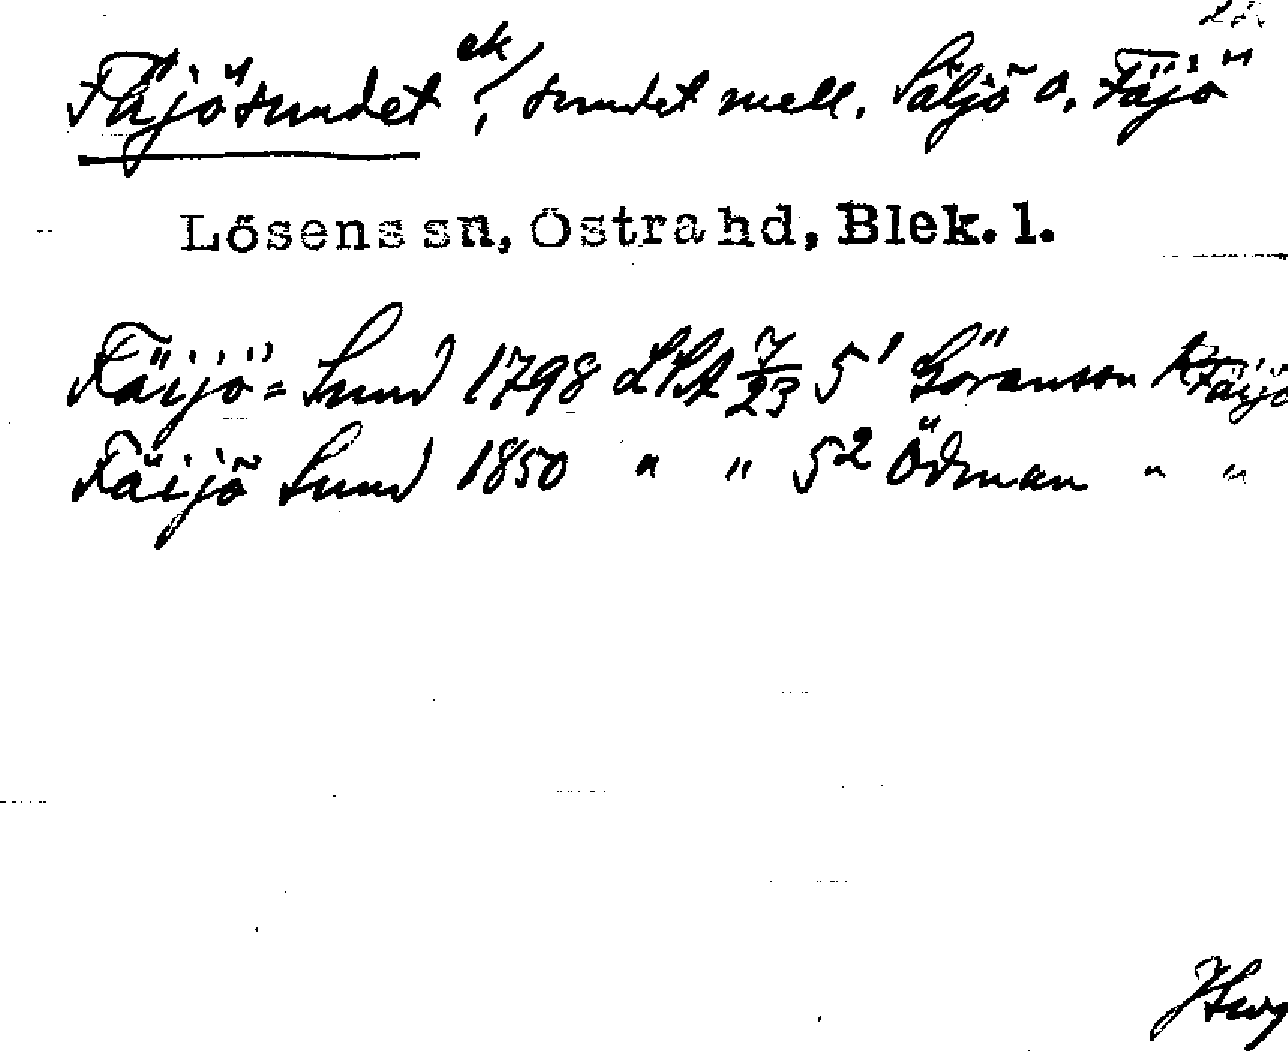 Fäjösundet ek/, sundet mell. Säljö o. Fäjö
Lösens sn, Östra hd, Blek. l.
Fäijö= Sund 1798 LSA 7/23 5¹ Göranson k Fäijö
Fäijö Sund 1850 " " 5² Ödman " "